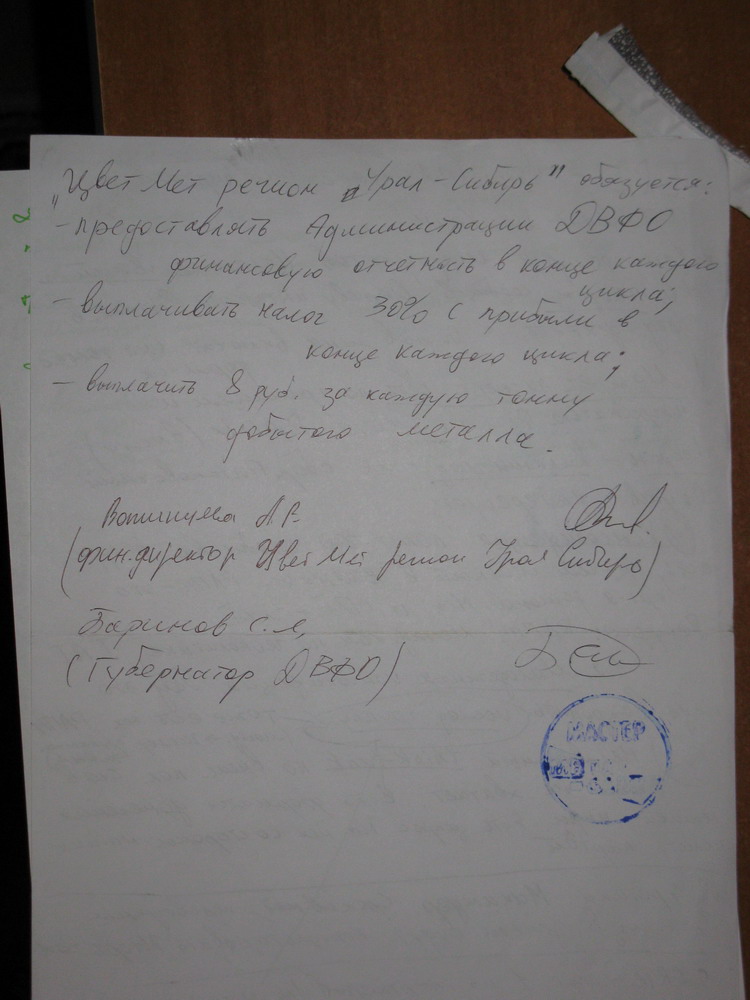 „ЦветМет регион „Урал-Сибирь" обязуется:
- предоставлять Администрации ДВФО
финансовую отчетность в конце каждого
цикла;
- выплачивать налог 30% с прибыли в
конце каждого цикла;
- выплачить 8 руб. за каждую тонну
добытого металла.
А.
(фин.директор ЦветМет регион Урал Сибирь)
Баринов С.А.
(Губернатор ДВФО)
МАСТЕР